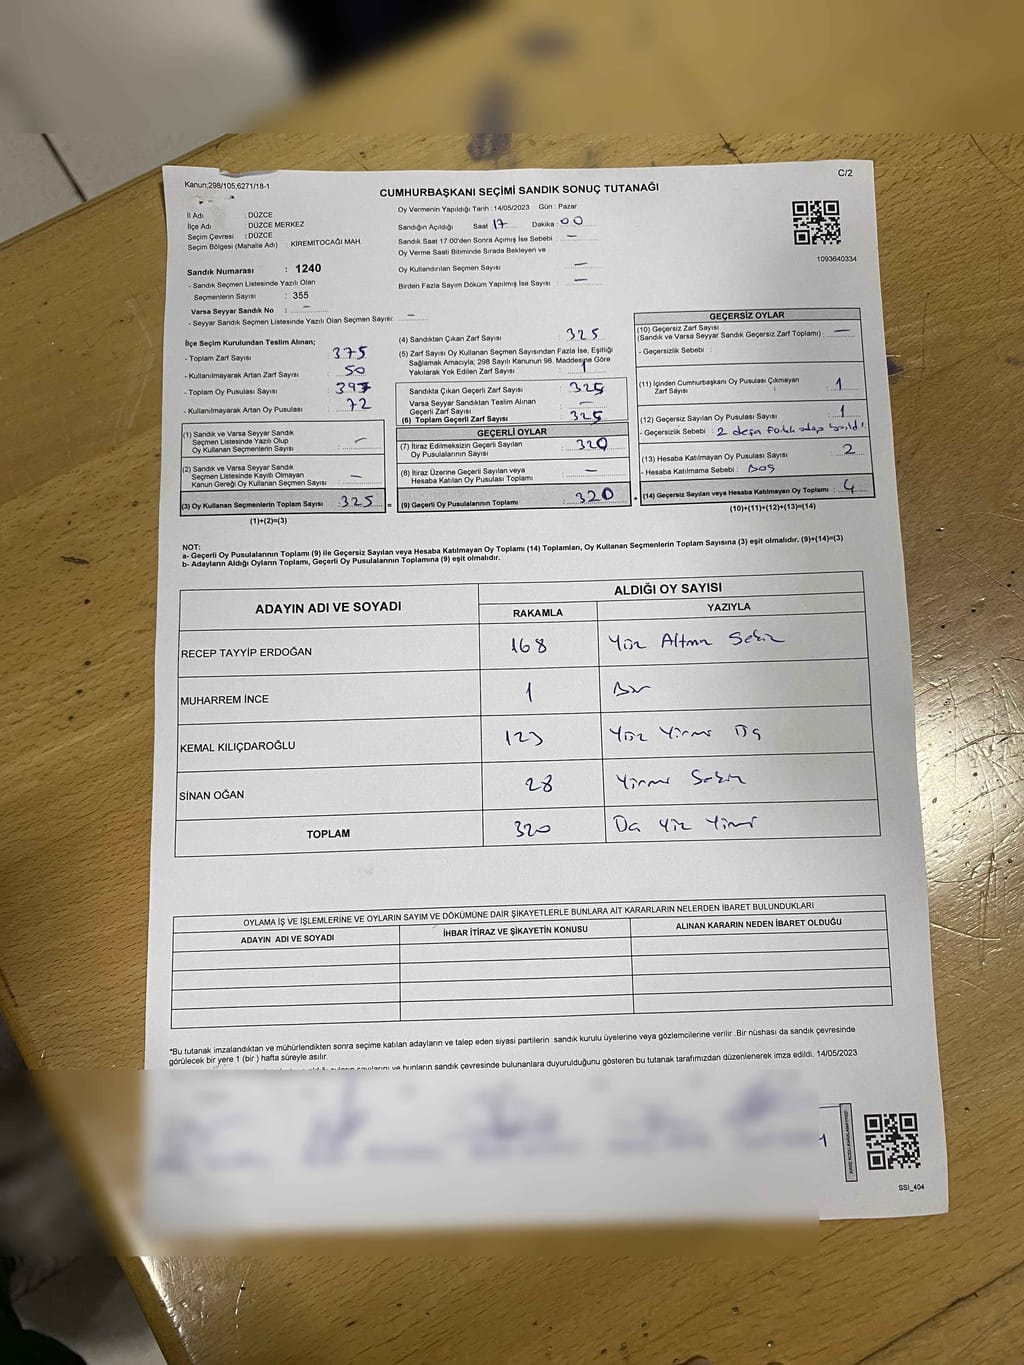 Kanun;298/105;6271/18-1
C/2
CUMHURBAŞKANI SEÇİMİ SANDIK SONUÇ TUTANAĞI
İl Adı : DÜZCE
İlçe Adı : DÜZCE MERKEZ
Seçim Çevresi : DÜZCE
Seçim Bölgesi (Mahalle Adı) : KİREMİTOCAĞI MAH.
Sandık Numarası : 1240
- Sandık Seçmen Listesinde Yazılı Olan
Seçmenlerin Sayısı : 355
Varsa Seyyar Sandık No : –
- Seyyar Sandık Seçmen Listesinde Yazılı Olan Seçmen Sayısı: –
Oy Vermenin Yapıldığı Tarih : 14/05/2023 Gün : Pazar
Sandığın Açıldığı Saat 17 Dakika : 00
Sandık Saat 17:00'den Sonra Açımış İse Sebebi –
Oy Verme Saati Bitiminde Sırada Bekleyen ve
Oy Kullandırılan Seçmen Sayısı –
Birden Fazla Sayım Döküm Yapılmış İse Sayısı : –
1093640334
İlçe Seçim Kurulundan Teslim Alınan;
- Toplam Zarf Sayısı : 375
- Kullanılmayarak Artan Zarf Sayısı : 50
- Toplam Oy Pusulası Sayısı : 397
- Kullanılmayarak Artan Oy Pusulası : 72
(1) Sandık ve Varsa Seyyar Sandık
Seçmen Listesinde Yazılı Olup
Oy Kullanan Seçmenlerin Sayısı : –
(2) Sandık ve Varsa Seyyar Sandık
Seçmen Listesinde Kayıtlı Olmayan
Kanun Gereği Oy Kullanan Seçmen Sayısı : –
(3) Oy Kullanan Seçmenlerin Toplam Sayısı : 325 =
(1)+(2)=(3)
(4) Sandıktan Çıkan Zarf Sayısı : 325
(5) Zarf Sayısı Oy Kullanan Seçmen Sayısından Fazla İse, Eşitliği
Sağlamak Amacıyla; 298 Sayılı Kanunun 98. Maddesine Göre
Yakılarak Yok Edilen Zarf Sayısı :
Sandıkta Çıkan Geçerli Zarf Sayısı : 325
Varsa Seyyar Sandıktan Teslim Alınan
Geçerli Zarf Sayısı : –
(6) Toplam Geçerli Zarf Sayısı : 325
GEÇERLİ OYLAR
(7) İtiraz Edilmeksizin Geçerli Sayılan
Oy Pusulasının Sayısı : 320
(8) İtiraz Üzerine Geçerli Sayılan veya
Hesaba Katılan Oy Pusulası Toplamı : –
(9) Geçerli Oy Pusulalarının Toplamı : 320 +
GEÇERSİZ OYLAR
(10) Geçersiz Zarf Sayısı
(Sandık ve Varsa Seyyar Sandık Geçersiz Zarf Toplamı) : –
- Geçersizlik Sebebi :
(11) İçinden Cumhurbaşkanı Oy Pusulası Çıkmayan
Zarf Sayısı : 1
(12) Geçersiz Sayılan Oy Pusulası Sayısı : 1
- Geçersizlik Sebebi :
(13) Hesaba Katılmayan Oy Pusulası Sayısı : 2
- Hesaba Katılmama Sebebi : Boş
(14) Geçersiz Sayılan veya Hesaba Katılmayan Oy Toplamı : 4
(10)+(11)+(12)+(13)=(14)
NOT:
a- Geçerli Oy Pusulalarının Toplamı (9) ile Geçersiz Sayılan veya Hesaba Katılmayan Oy Toplamı (14) Toplamları, Oy Kullanan Seçmenlerin Toplam Sayısına (3) eşit olmalıdır. (9)+(14)=(3)
b- Adayların Aldığı Oyların Toplamı, Geçerli Oy Pusulalarının Toplamına (9) eşit olmalıdır.
ADAYIN ADI VE SOYADI
ALDIĞI OY SAYISI
RAKAMLA YAZIYLA
RECEP TAYYİP ERDOĞAN 168 Yüz Altmış Sekiz
MUHARREM İNCE 1 Bir
KEMAL KILIÇDAROĞLU 123 Yüz Yirmi Üç
SİNAN OĞAN 28 Yirmi Sekiz
TOPLAM 320 Üç Yüz Yirmi
OYLAMA İŞ VE İŞLEMLERİNE VE OYLARIN SAYIM VE DÖKÜMÜNE DAİR ŞİKAYETLERLE BUNLARA AİT KARARLARIN NELERDEN İBARET BULUNDUKLARI
ADAYIN ADI VE SOYADI İHBAR İTİRAZ VE ŞİKAYETİN KONUSU ALINAN KARARIN NEDEN İBARET OLDUĞU
*Bu tutanak imzalandıktan ve mühürlendikten sonra seçime katılan adayların ve talep eden siyasi partilerin sandık kurulu üyelerine veya gözlemcilerine verilir. Bir nüshası da sandık çevresinde
görülecek bir yere 1 (bir ) hafta süreyle asılır.
ve bunların sandık çevresinde bulunanlara duyurulduğunu gösteren bu tutanak tarafımızdan düzenlenerek imza edildi. 14/05/2023
SSI_404